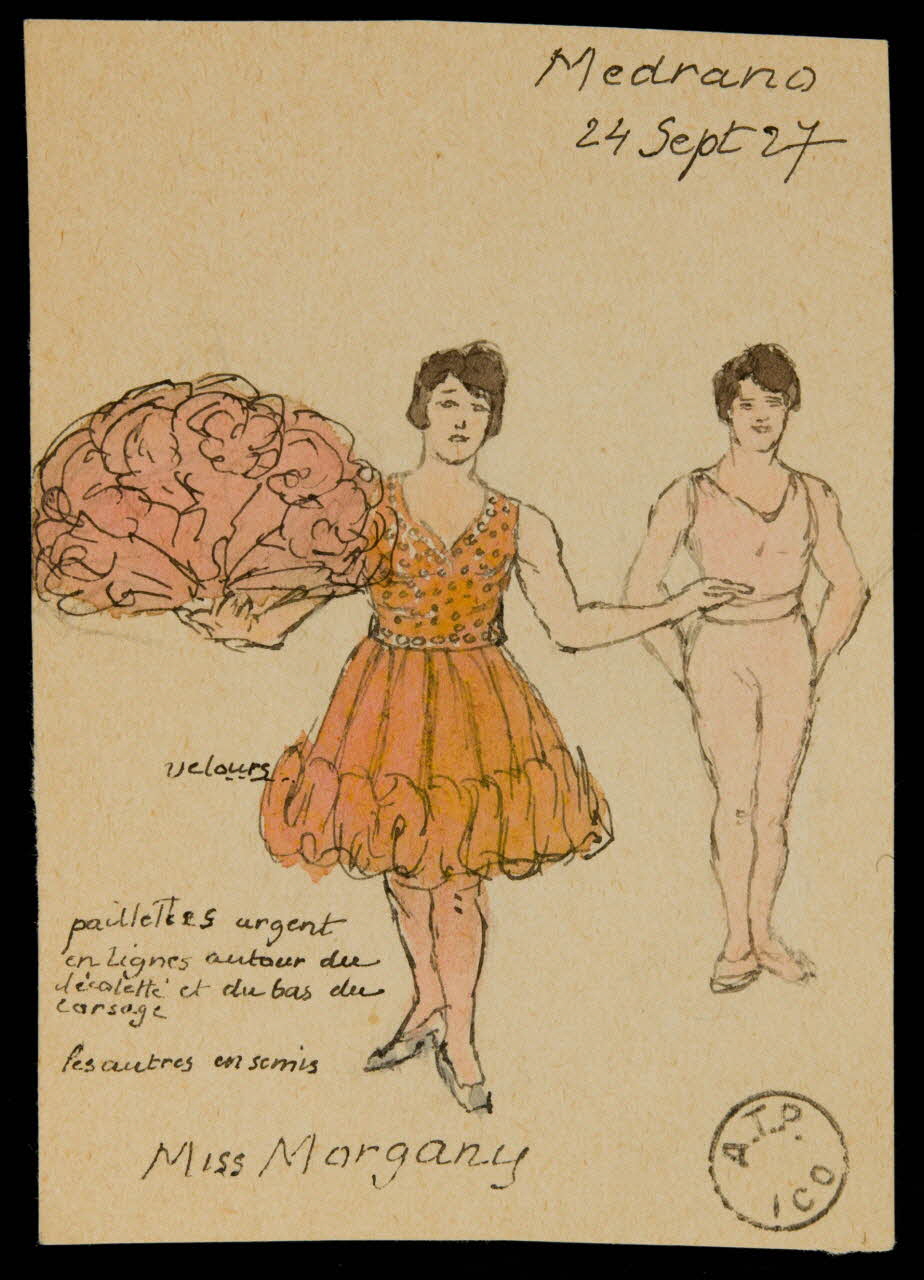 Medrano
24 Sept 27
velours
paillettes argent
en lignes autour du
décoletté et du bas du
corsage
les autres en semis
Miss Morgany
A.T.P.
ICO